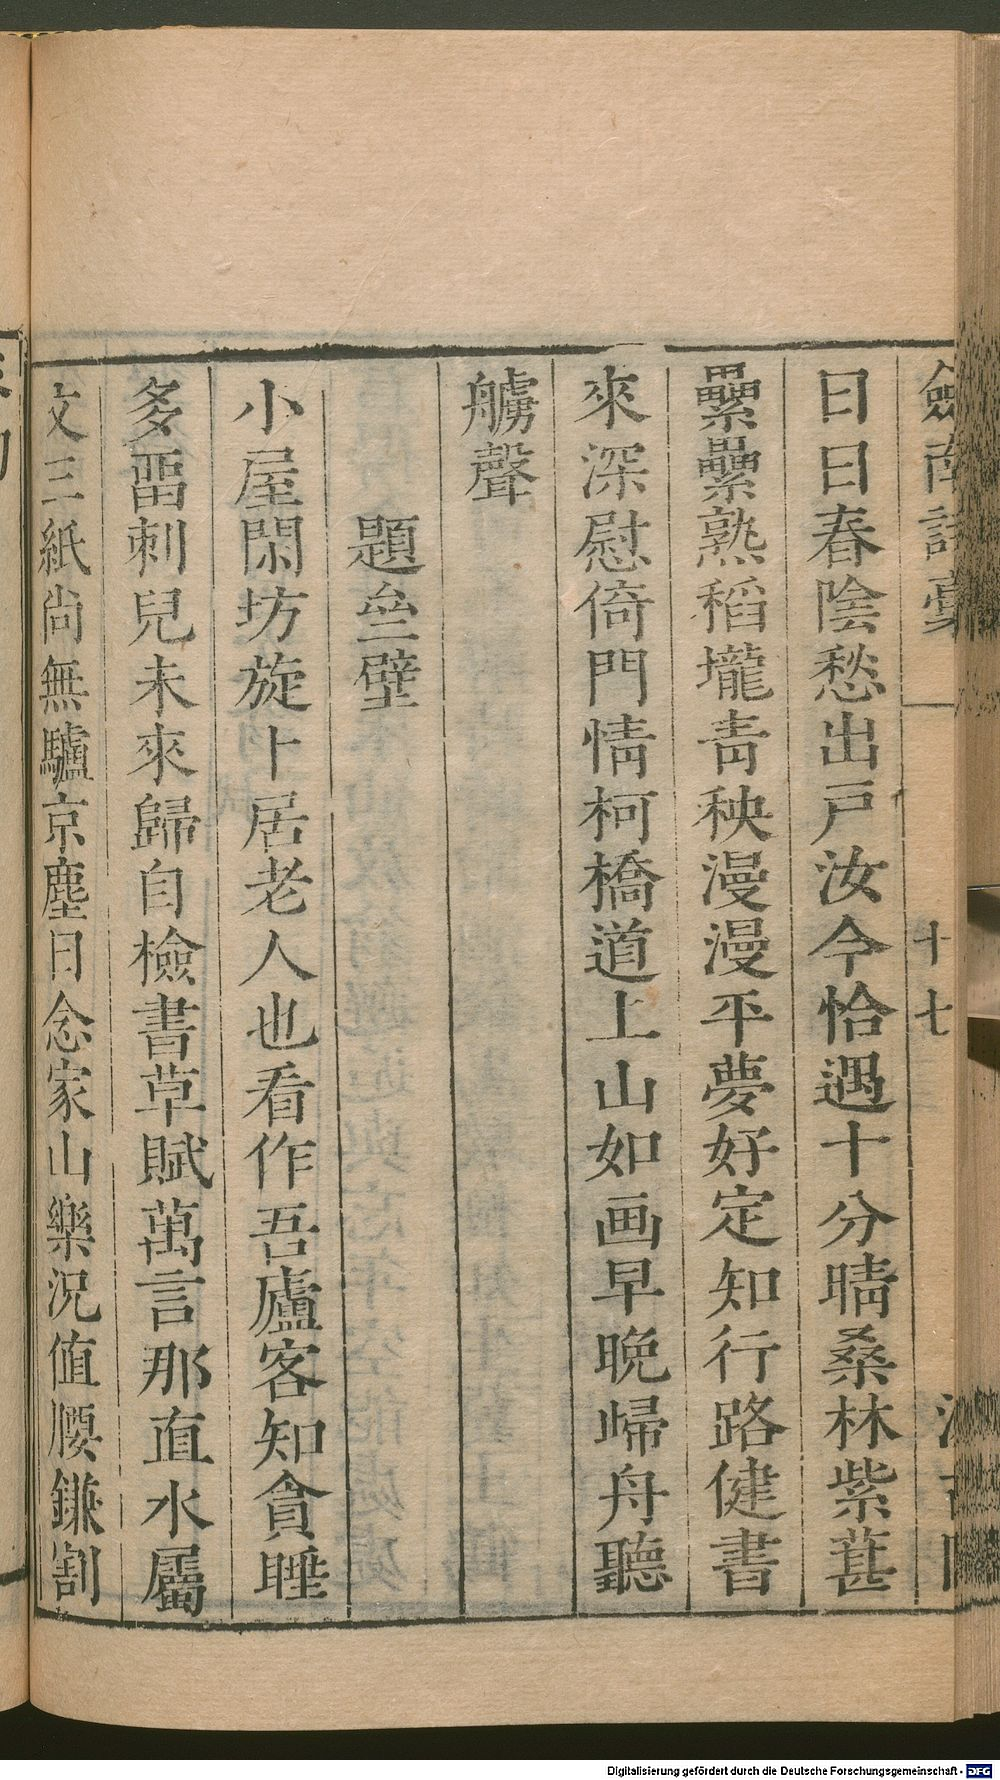 劔南詩稾
十七
日日春陰愁出戸汝今恰遇十分晴桑林紫葚
纍纍熟稻壠青秧漫漫平夢好定知行路健書
來深慰倚門情柯橋道上山如画早晚歸舟聽
艣聲
題亝壁
小屋閑坊旋卜居老人也看作吾廬客知貪睡
多畱刺兒未來歸自檢書草賦萬言那直水屬
文三紙尚無驢京塵日念家山樂況值腰鎌割
Digitalisierung gefördert durch die Deutsche Forschungsgemeinschaft - DFG